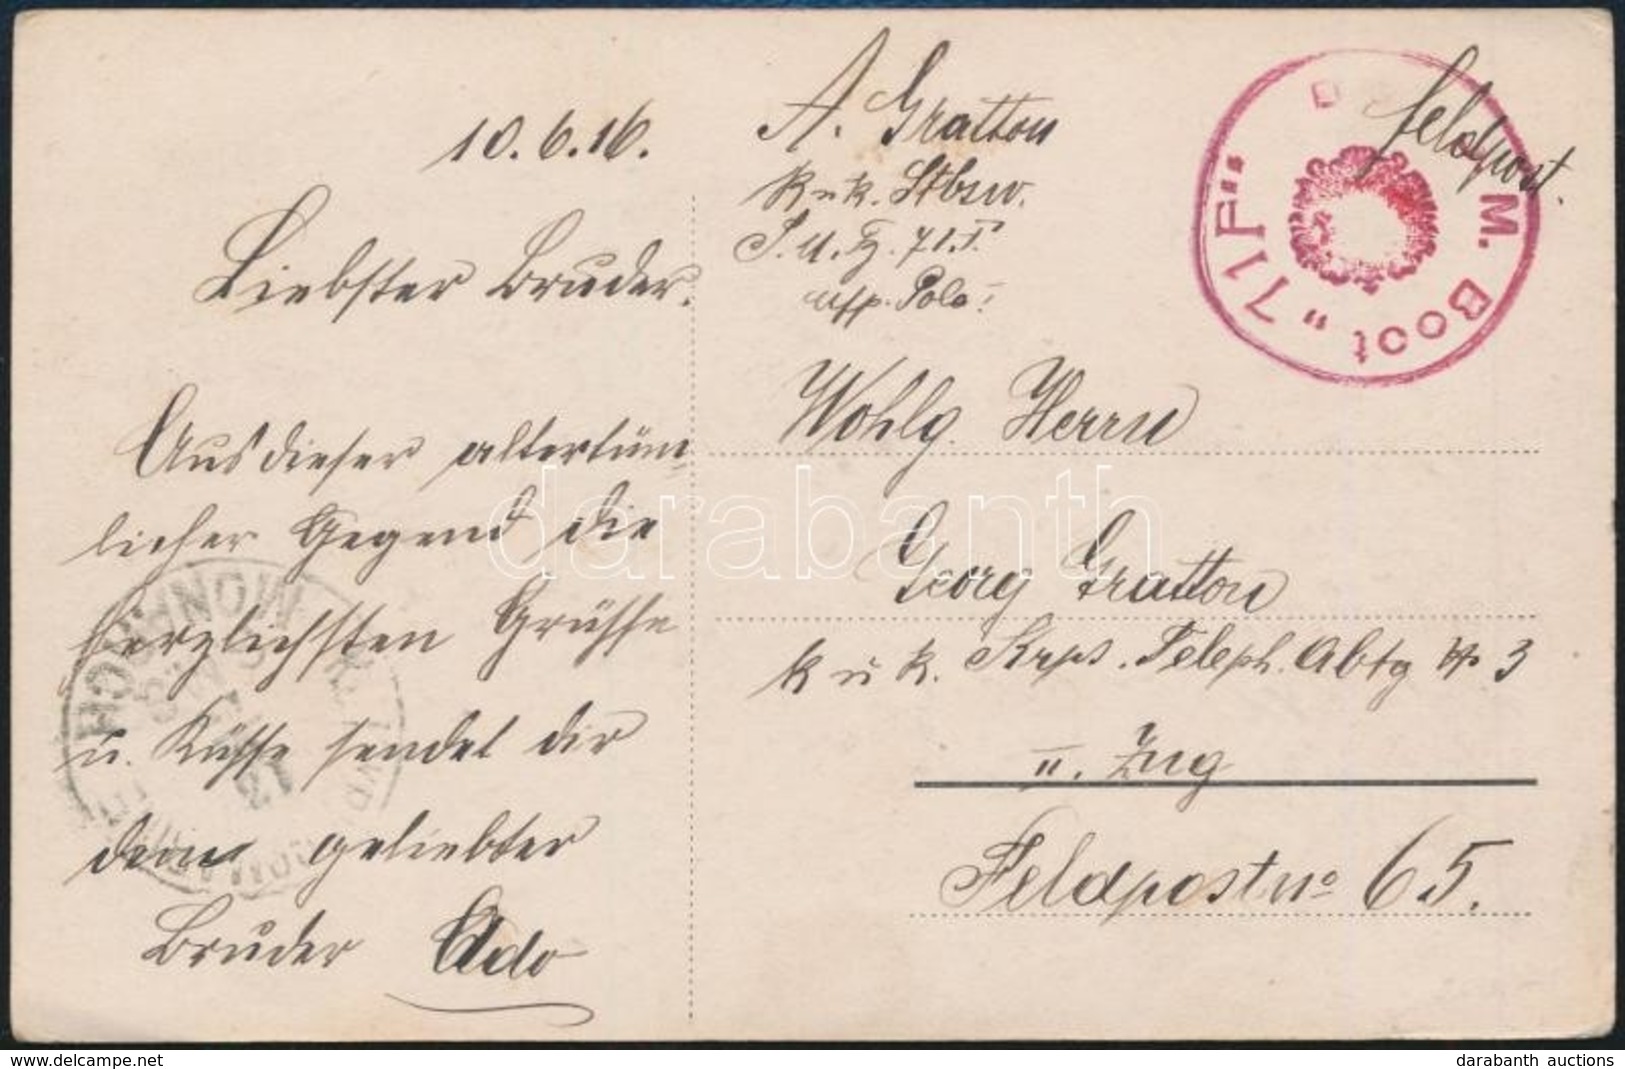 10.6.16.
Liebster Bruder.
Aus dieser altertüm-
licher Gegend die
herzlichsten Grüsse
u. Küsse sendet dir
dein geliebter
Bruder Ado
A. Gratton
k u k. Stbsw.
S.M.
71.F
Pola
Feldpost.
M. Boot „71F“
Wohlg. Herrn
Georg Gratton
k u k. Krps. Teleph. Abtg No 3
II. Zug
Feldpost No 65.
MONARCH
darabanth
darabanth auctions